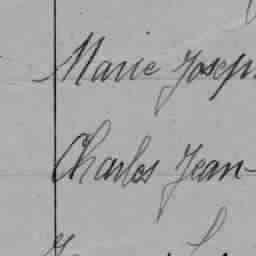 Marie Josep
Charles Jean-